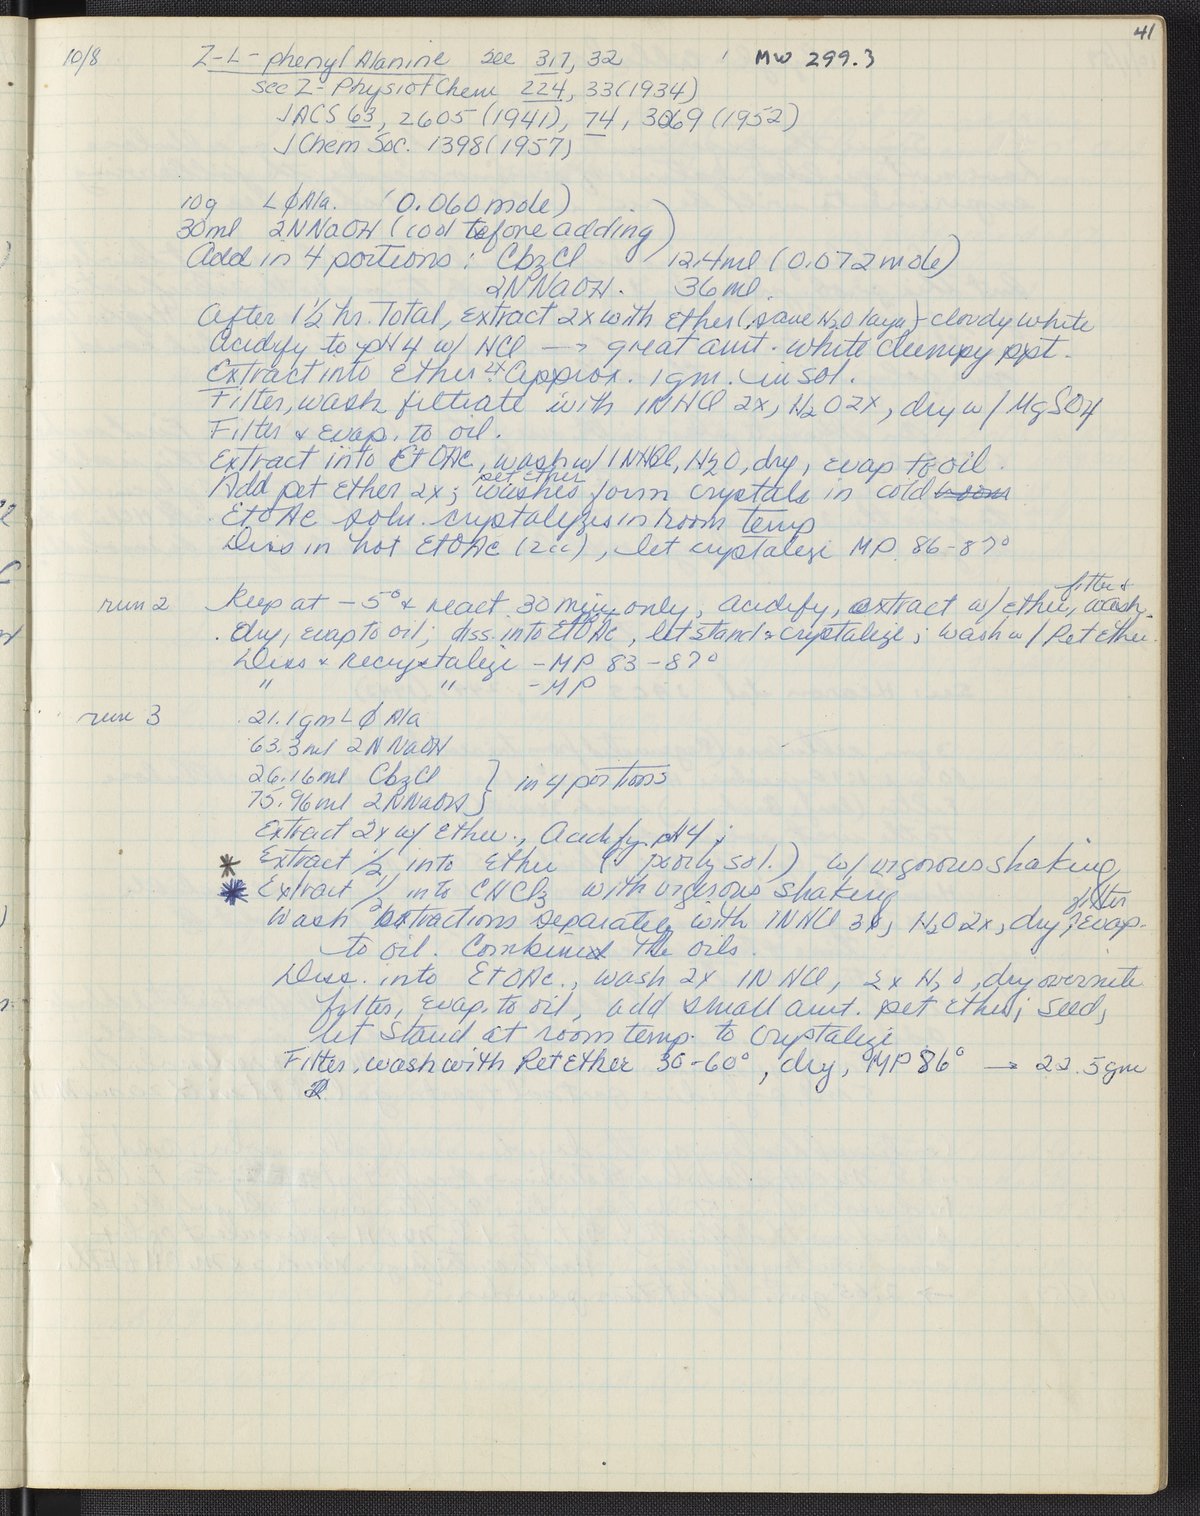 41
10/8 Z-L-phenyl Alanine see 317, 32 MW 299.3
see Z-Physiol Chem 224, 33 (1934)
JACS 63, 2605 (1941), 74, 3069 (1952)
J Chem Soc. 1398 (1957)
10g L ϕ Ala. (0.060 mole)
30ml 2N NaOH (cool before adding)
Add in 4 portions: CbzCl 12.4ml (0.072 mole)
2N NaOH. 36 ml.
After 1½ hr. Total, extract 2x with Ether (save H2O layer) - cloudy white
Acidify to pH 4 w/ HCl → great amt. white clumpy ppt.
Extract into Ether Approx. 1gm. in sol.
Filter, wash filtrate with 1N HCl 2x, H2O 2x, dry w/ MgSO4
Filter & evap. to oil.
Extract into EtOAc, wash w/ 1N HCl, H2O, dry, evap to oil.
Add pet Ether 2x; pet ether washes form crystals in cold room
EtOAc soln. crystalizes in room temp
Diss in hot EtOAc (2cc), let crystalize MP. 86-87°
run 2 Keep at -5° & react 30 min only, acidify, extract w/ ether, filter & wash.
dry, evap to oil; diss. into EtOAc, let stand & crystalize; wash w/ Pet Ether.
Diss & Recrystalize - MP 83-87°
" " - MP
run 3 21.1gm L ϕ Ala
63.3ml 2N NaOH
26.16ml CbzCl } in 4 portions
75.96ml 2N NaOH
Extract 2x w/ Ether., Acidify pH 4;
* Extract ½ into Ether (poorly sol.) w/ vigorous shaking,
* Extract ½ into CHCl3 with vigerous shaking
Wash extractions separately with 1N HCl 3x, H2O 2x, dry, filter, evap.
to oil. Combined the oils.
Diss. into EtOAc., wash 2x 1N HCl, 2x H2O, dry overnite
filter, evap. to oil, add small amt. pet ether; seed,
let stand at room temp. to crystalize
Filter, wash with Pet Ether 30-60°, dry, MP 86° → 22.5gm